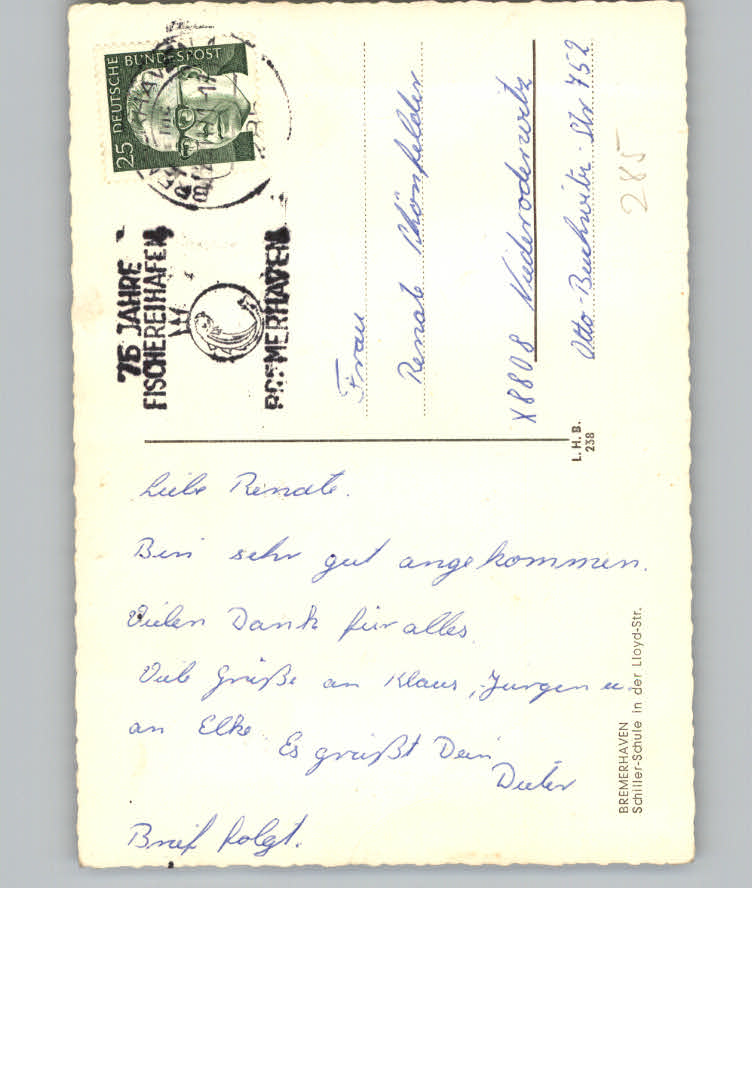 Liebe Renate.
Bin sehr gut angekommen.
Vielen Dank für alles.
Viele Grüße an Klaus, Jürgen u.
an Elke.
Es grüßt Dein
Dieter
Brief folgt.
DEUTSCHE BUNDESPOST
25
75 JAHRE
FISCHEREIHAFEN
BREMERHAVEN
Frau
Renate Schönfelder
X8808 Niederoderwitz
Otto-Buchwitz-Str 752
285
L.H.B.
238
BREMERHAVEN
Schiller-Schule in der Lloyd-Str.